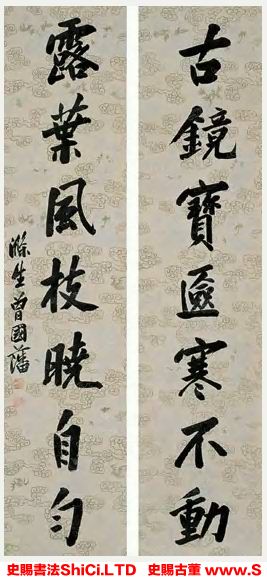 古鏡寶匳寒不動
露葉風枝曉自勻
滌生曾國藩
史賜書法ShiCi.LTD 史賜古董 www.S